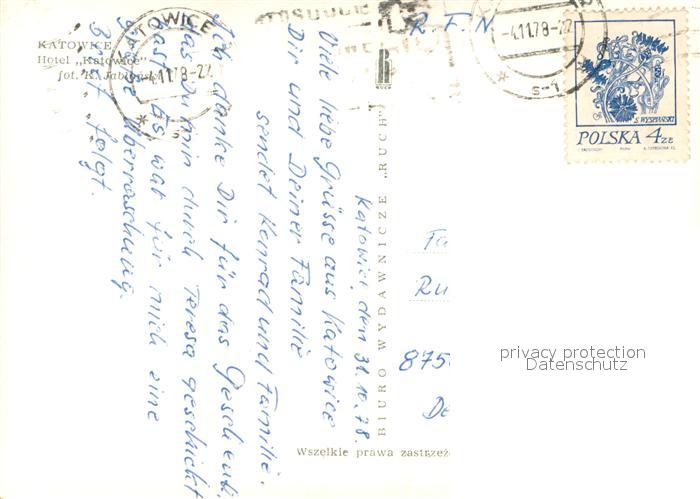 KATOWICE
Hotel „Katowice"
fot. K. Jabłoński
KATOWICE
-4.11.78-22
R.F.N.
-4.11.78-22
S. WYSPIAŃSKI
POLSKA 4 ZŁ
BIURO WYDAWNICZE „RUCH"
Wszelkie prawa zastrzeż
Katowice den 31.10.78.
Viele liebe Grüsse aus Katowice
Dir und Deiner Familie
sendet Konrad und Familie.
Ich danke Dir für das Geschenk,
das Du mir durch Teresa geschickt
hast. Es war für mich eine
grosse Überraschung.
Brief folgt.
Fa
Ru
875
De
privacy protection
Datenschutz